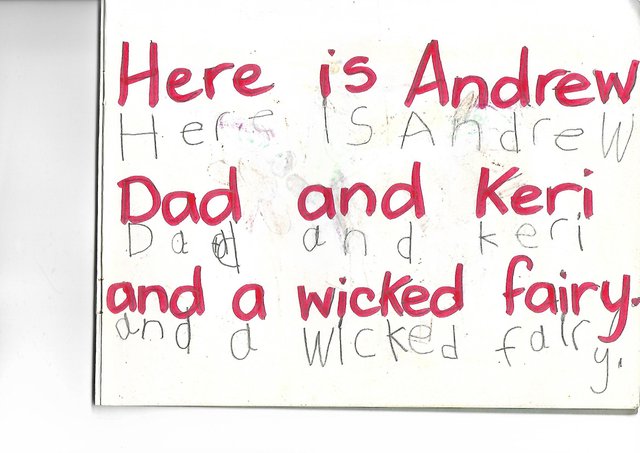 Here is Andrew
Here IS Andrew
Dad and Keri
Dad and keri
and a wicked fairy.
and a wicked fairy.